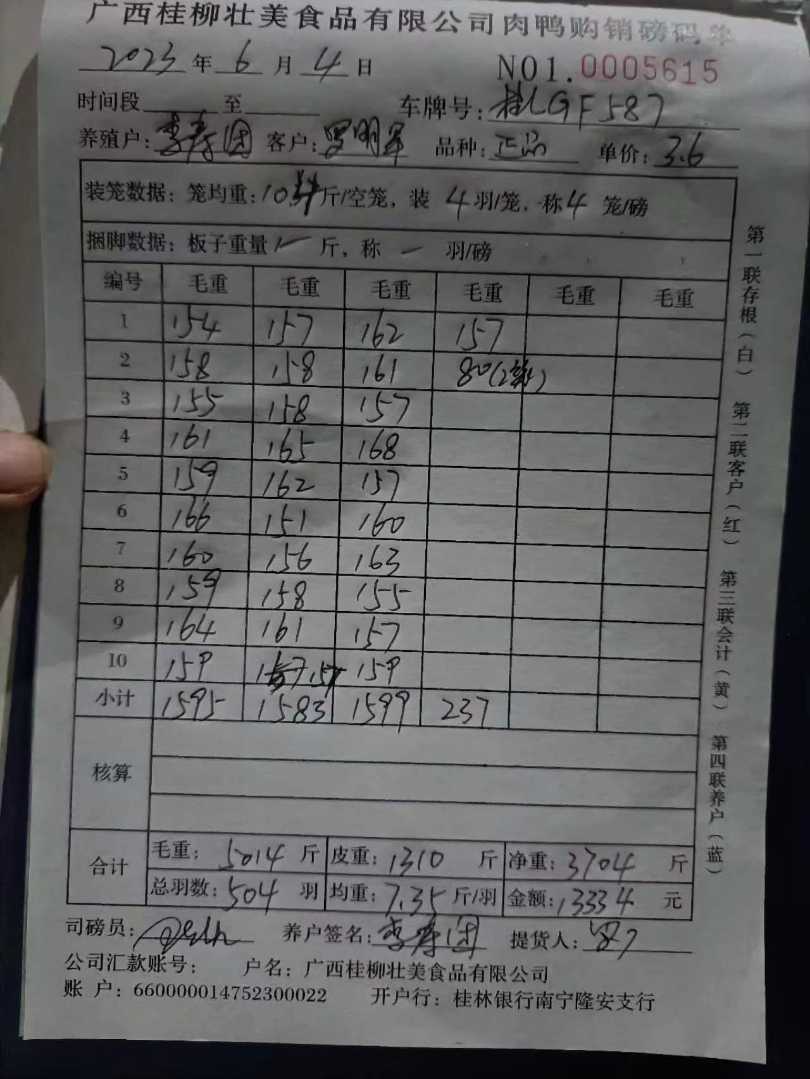 广西桂柳壮美食品有限公司肉鸭购销磅码单
2023年6月4日 NO1.0005615
时间段 至 车牌号:桂LGF587
养殖户:李寿团 客户:罗明军 品种:正品 单价:3.6
装笼数据:笼均重:10 斤/空笼,装4羽/笼,称4笼/磅
捆脚数据:板子重量 斤,称一羽/磅
编号 毛重 毛重 毛重 毛重 毛重 毛重
1 154 157 162 157
2 158 158 161 80(2)
3 155 158 157
4 161 165 168
5 159 162 157
6 166 151 160
7 160 156 163
8 159 158 155
9 164 161 157
10 159 157 159
小计 1595 1583 1599 237
核算
合计 毛重:5014斤 皮重:1310斤 净重:3704斤
总羽数:504羽 均重:7.35斤/羽 金额:13334元
司磅员: 养户签名:李寿团 提货人:
公司汇款账号: 户名:广西桂柳壮美食品有限公司
账 户:660000014752300022 开户行:桂林银行南宁隆安支行
第一联存根(白) 第二联客户(红) 第三联会计(黄) 第四联养户(蓝)